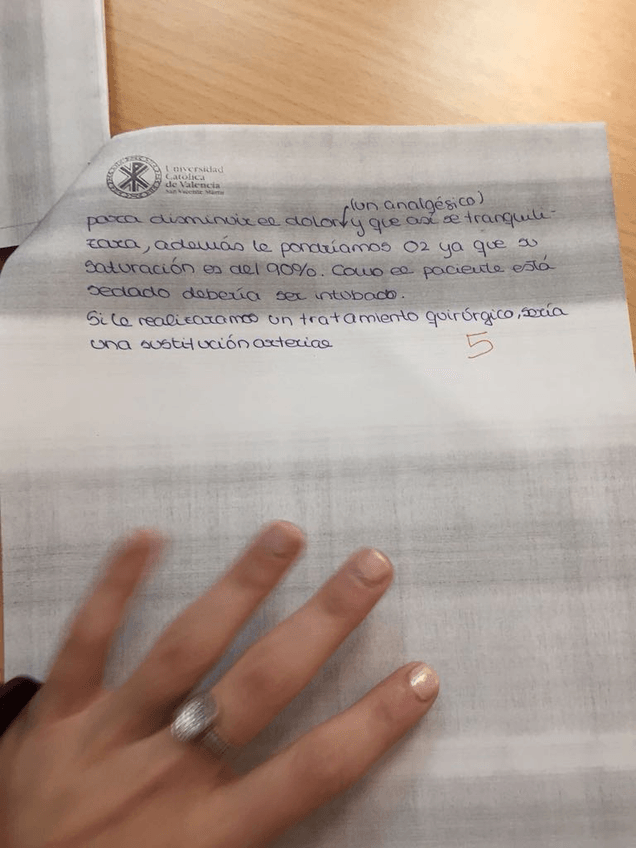 Universidad
Católica
de Valencia
San Vicente Mártir
(un analgésico)
para disminuir el dolor y que así se tranquili-
zara, además le pondríamos O2 ya que su
saturación es del 90%. Como el paciente está
sedado debería ser intubado.
Si le realizaramos un tratamiento quirúrgico, sería
una sustitución arterial
5